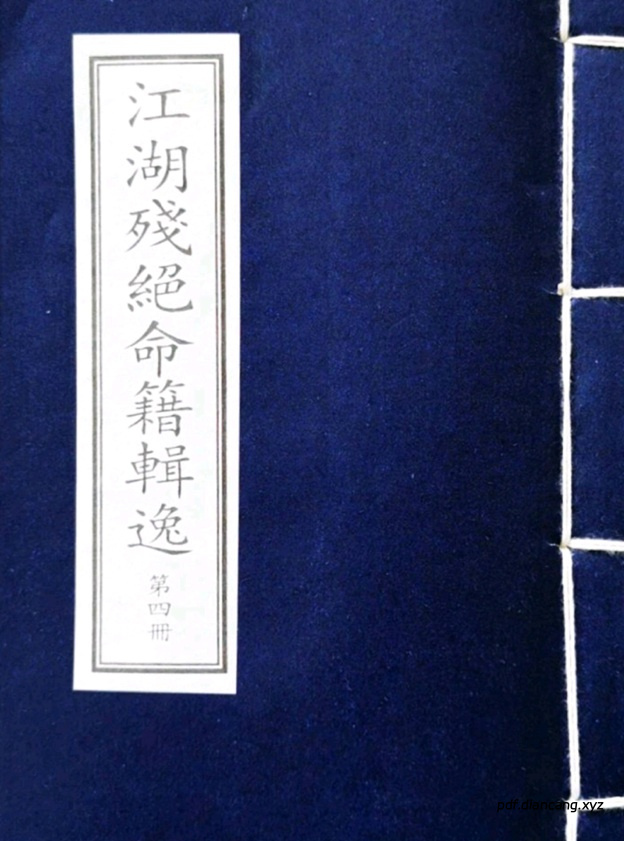 江湖殘絕命籍輯逸
第四冊
pdf.diancang.xyz